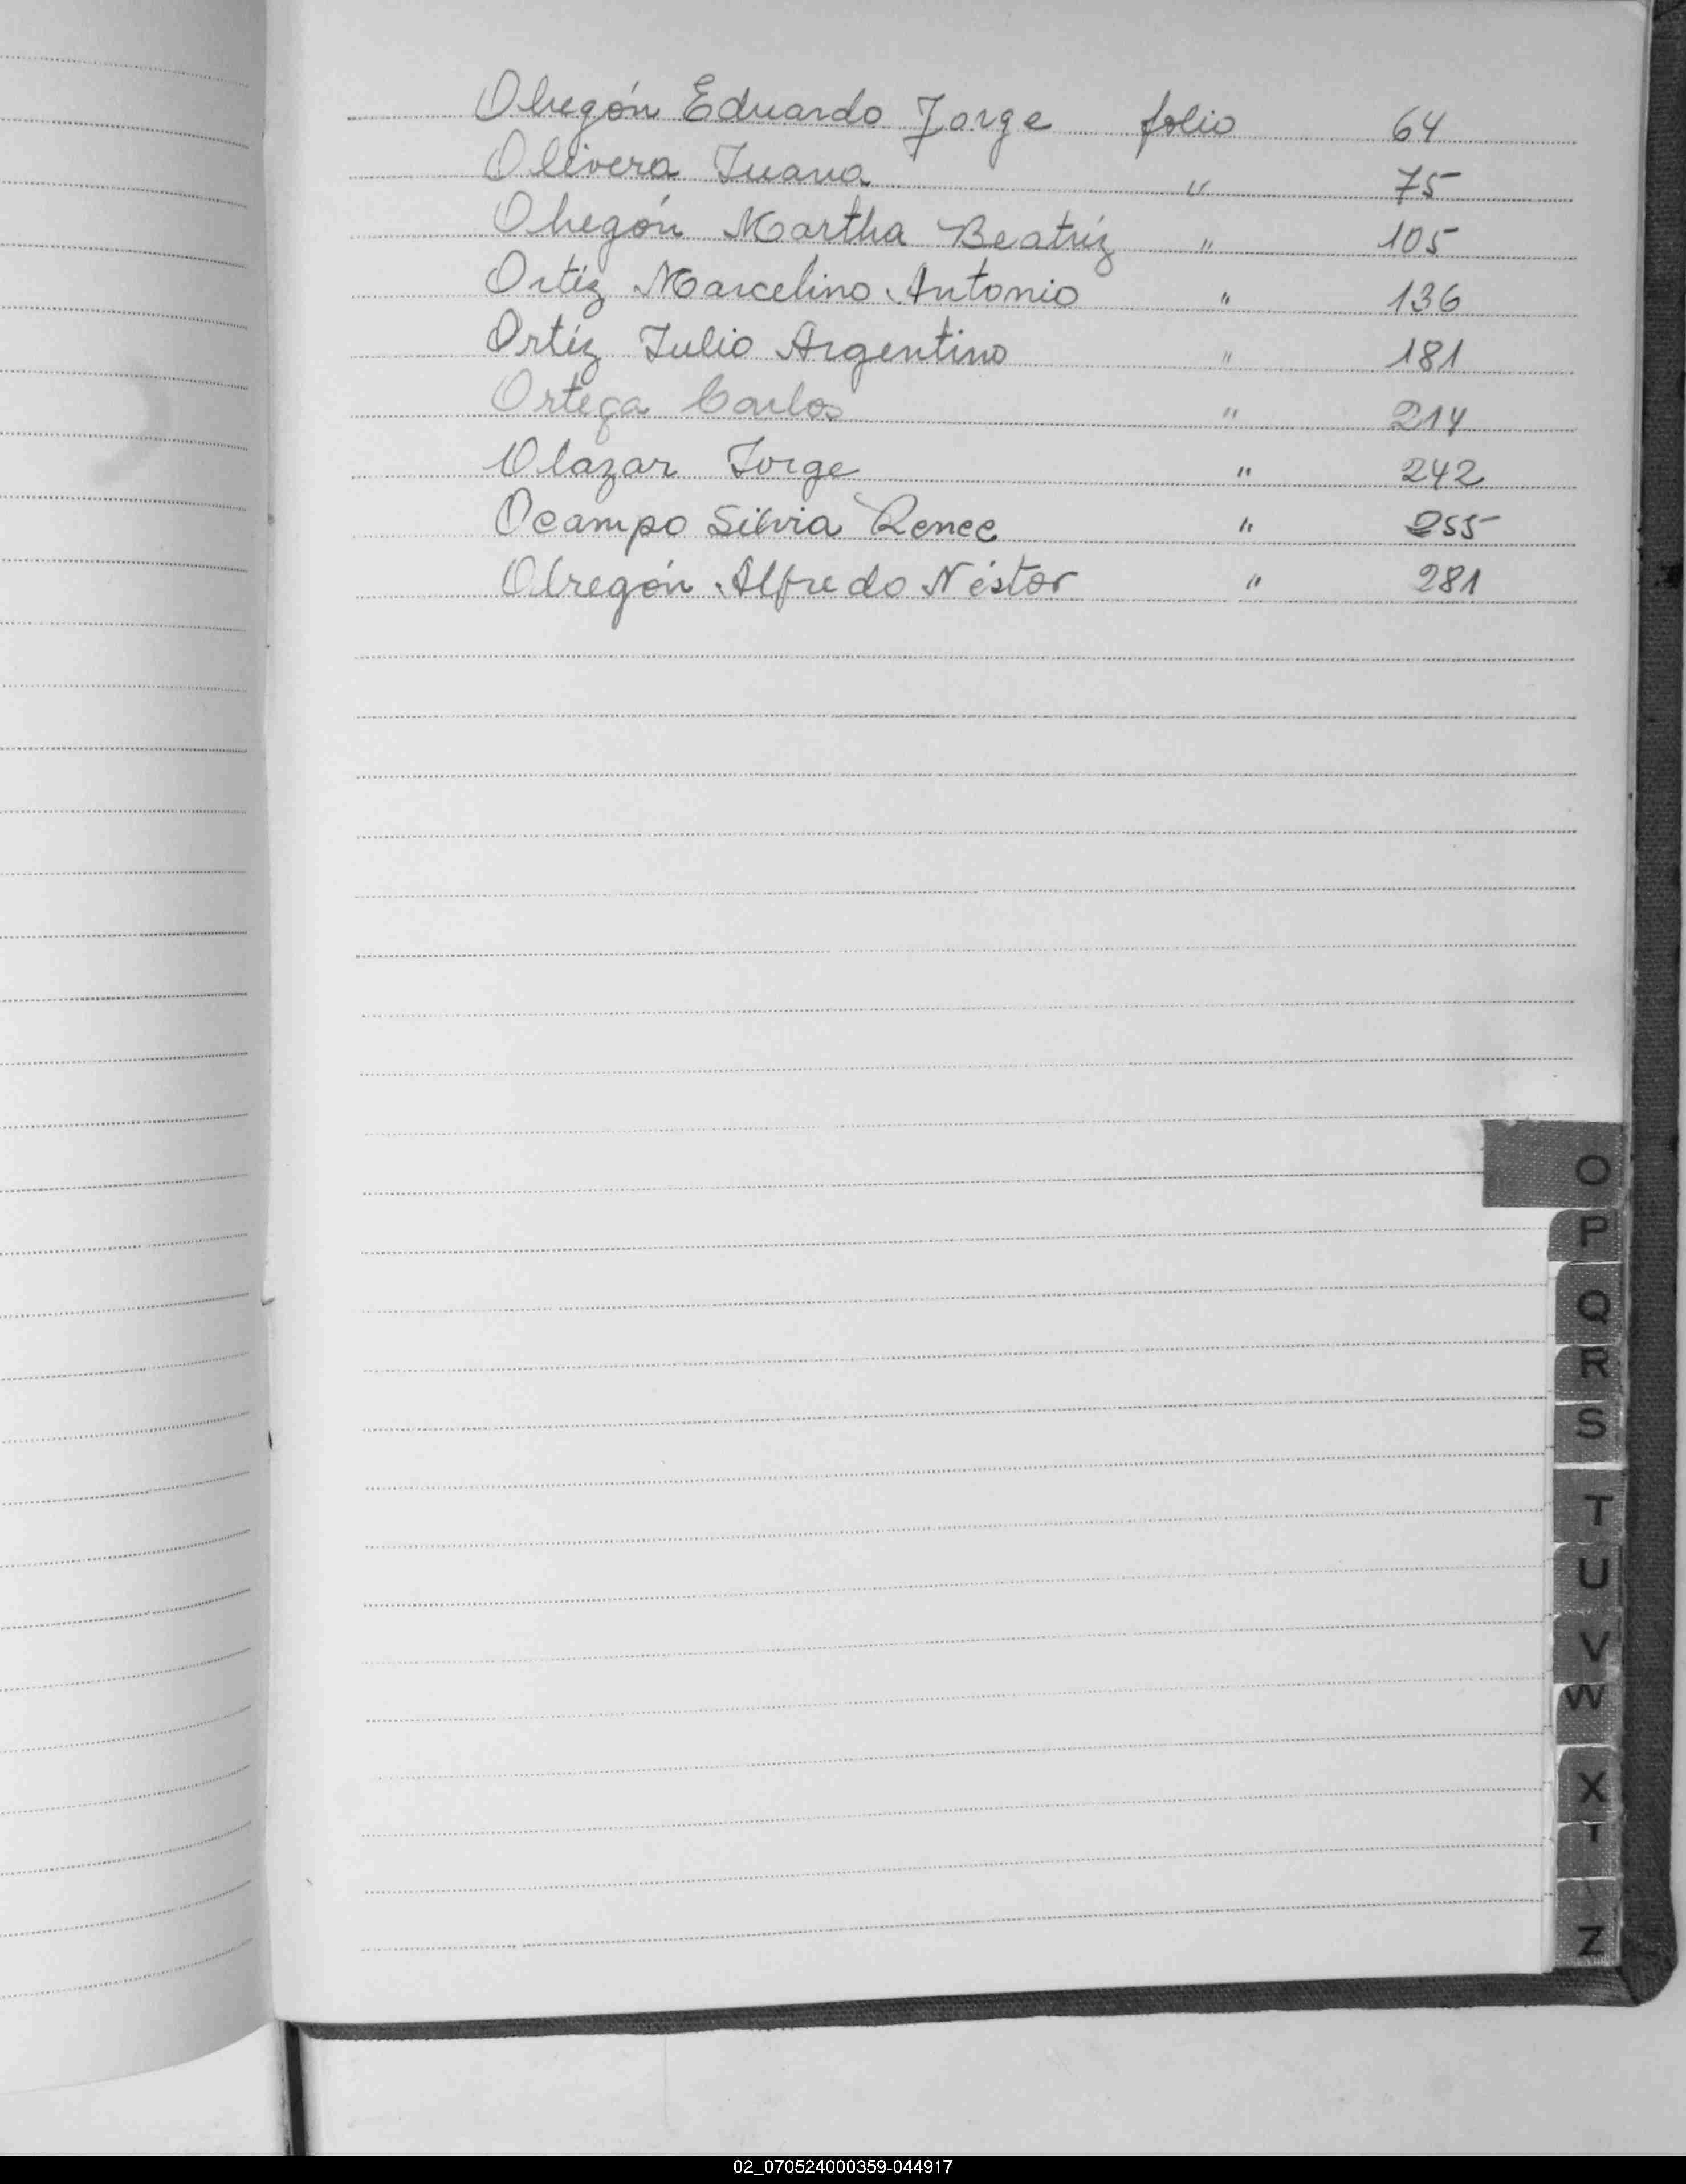 Obregón Eduardo Jorge folio 64
Olivera Juana " 75
Obregón Martha Beatríz " 105
Ortíz Marcelino Antonio " 136
Ortíz Julio Argentino " 181
Ortega Carlos " 214
Olazar Jorge " 242
Ocampo Silvia Renee " 255
Obregón Alfredo Néstor " 281
O
P
Q
R
S
T
U
V
W
X
Z
02_070524000359-044917